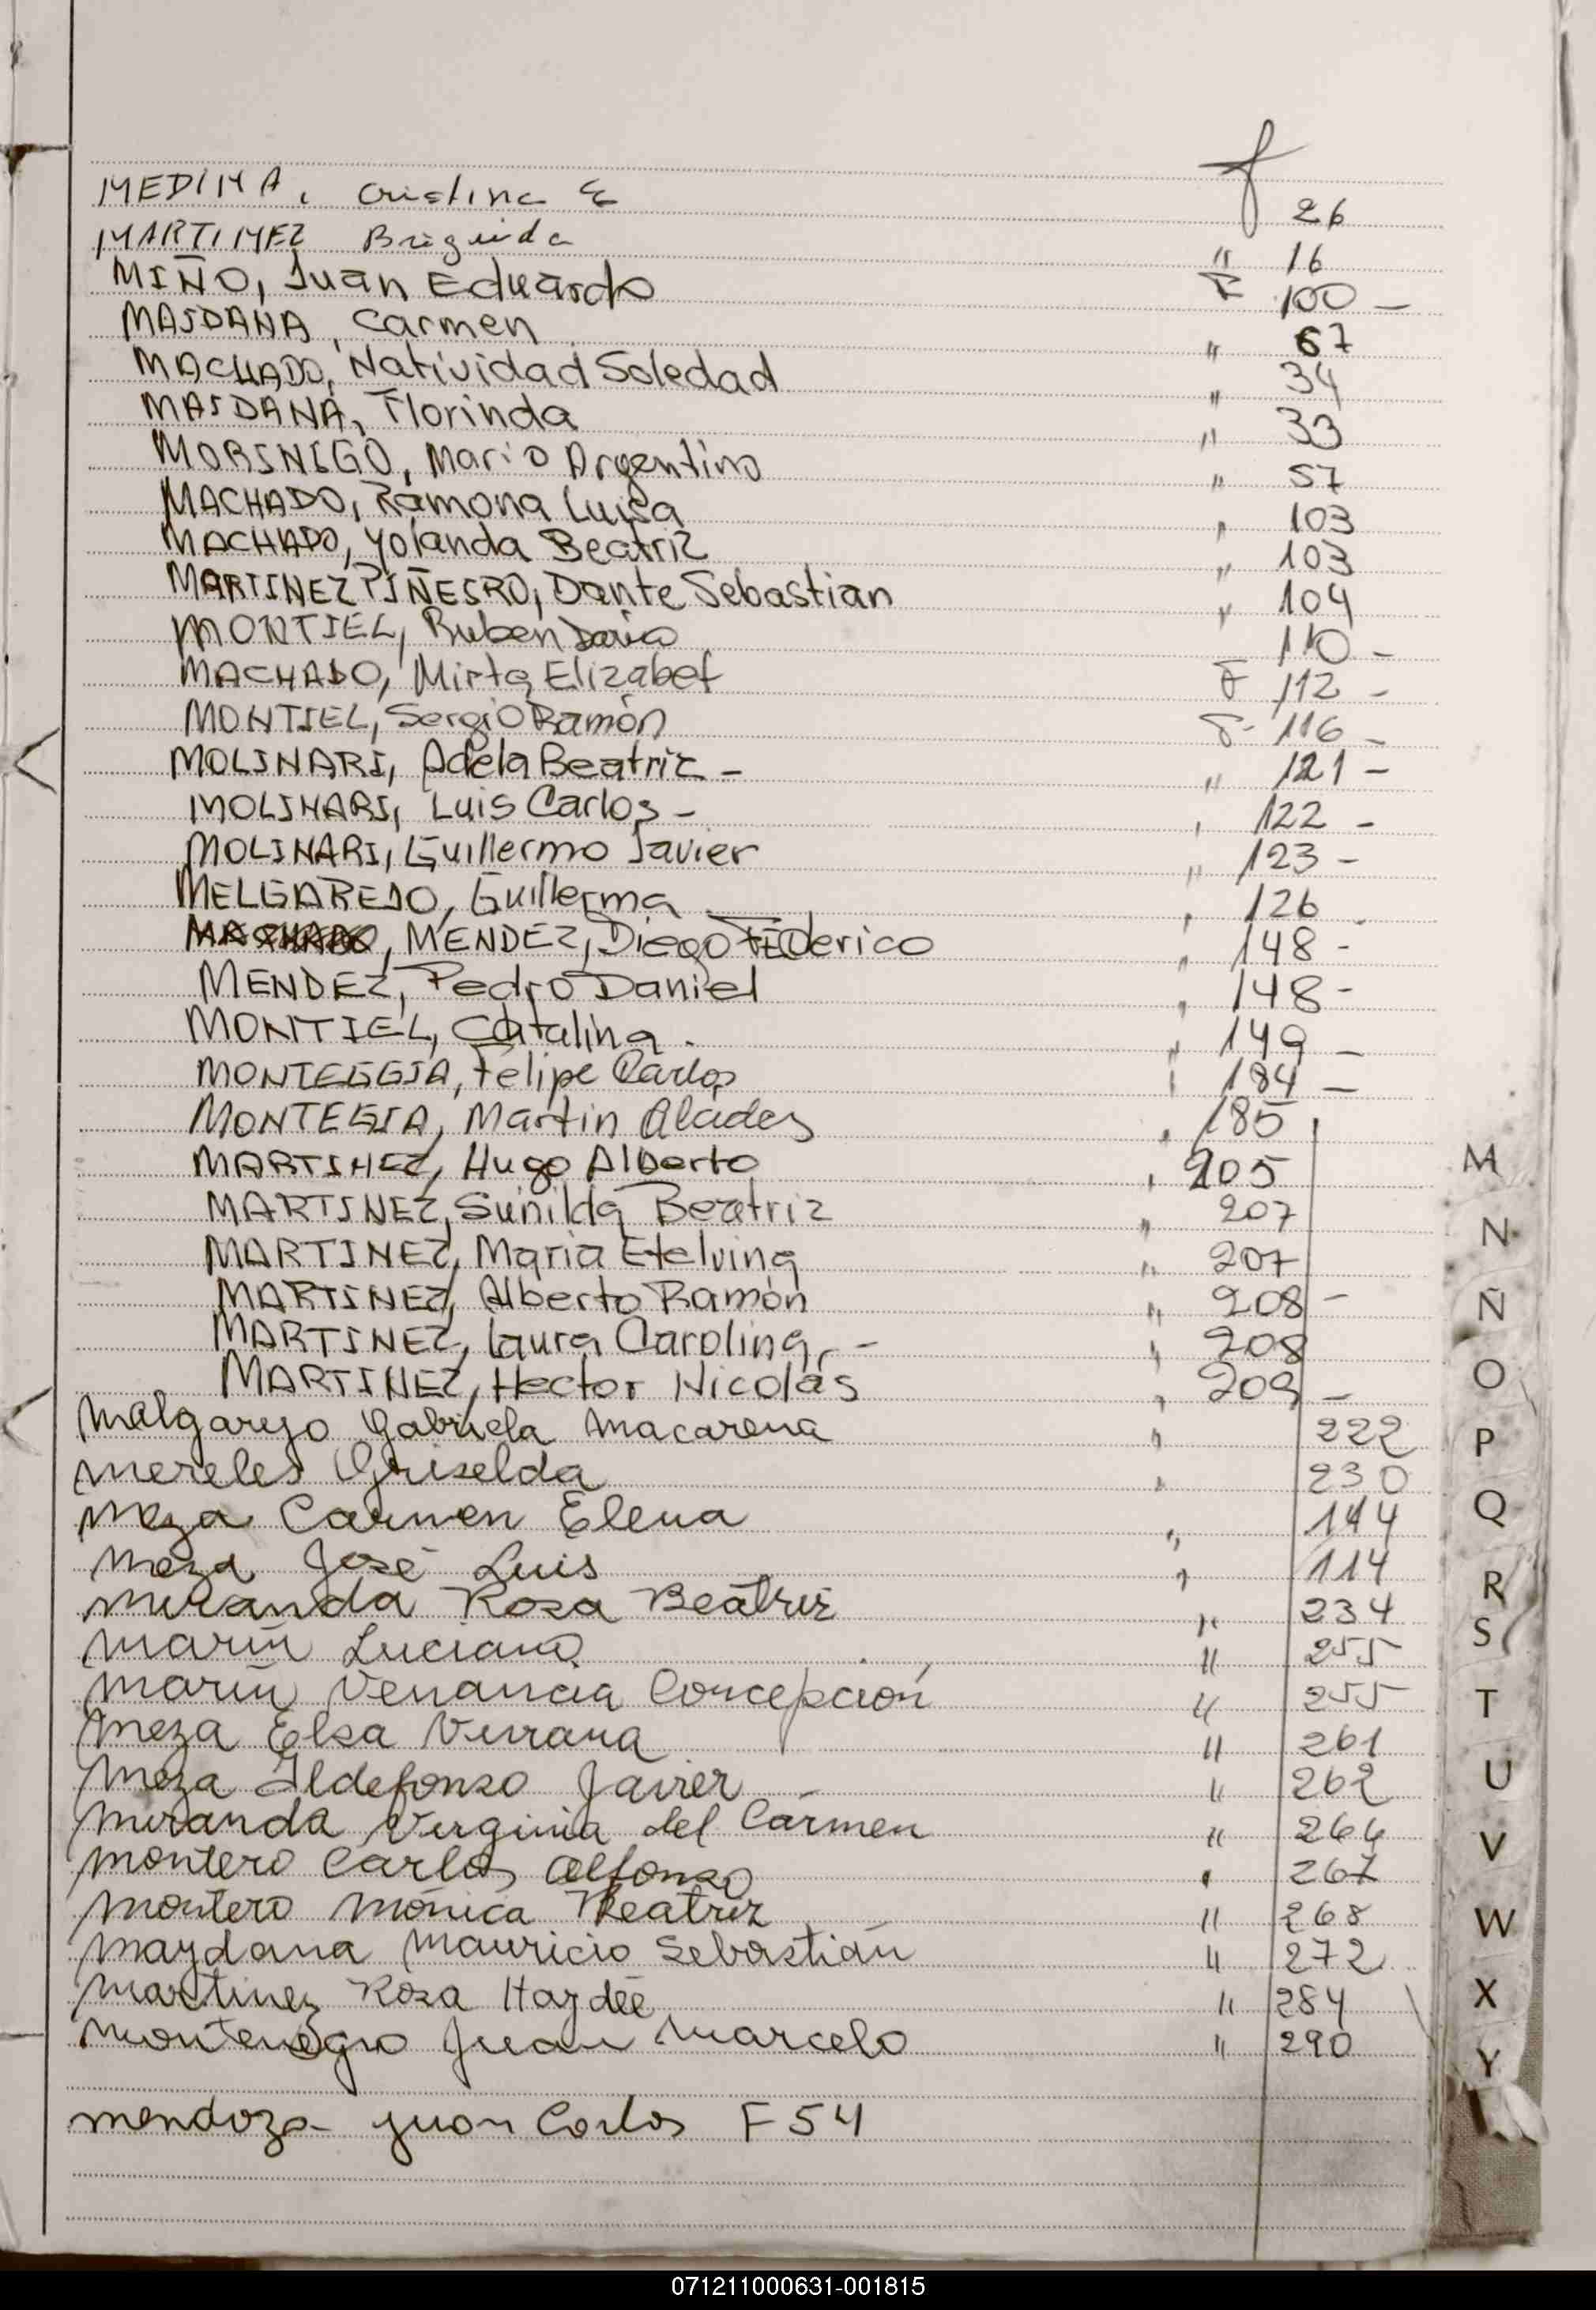 MEDINA, Cristina E f 26
MARTINEZ Brigida " 16
MIÑO, Juan Eduardo F 100 -
MAIDANA, Carmen " 67
MACHADO, Natividad Soledad " 34
MAIDANA, Florinda " 33
MORINIGO, Mario Argentino " 57
MACHADO, Ramona Luisa " 103
MACHADO, Yolanda Beatriz " 103
MARTINEZ PIÑEIRO, Dante Sebastian " 104
MONTIEL, Ruben Dario 110 -
MACHADO, Mirta Elizabet F 112 -
MONTIEL, Sergio Ramón F- 116 -
MOLINARI, Adela Beatriz - " 121 -
MOLINARI, Luis Carlos - " 122 -
MOLINARI, Guillermo Javier " 123 -
MELGAREJO, Guillerma " 126
MENDEZ, Diego FEDerico " 148 -
MENDEZ, Pedro Daniel " 148 -
MONTIEL, Catalina . " 149 -
MONTEGGIA, Felipe Carlos " 184 -
MONTEGIA, Martin Alcides " 185
MARTINEZ, Hugo Alberto " 205
MARTINEZ, Sunilda Beatriz " 207
MARTINEZ, Maria Etelvina " 207
MARTINEZ, Alberto Ramón " 208 -
MARTINEZ, Laura Carolina, - " 208
MARTINEZ, Hector Nicolás " 209 -
Malgarejo Gabriela Macarena " 222
Mereles Griselda " 230
Meza Carmen Elena " 144
Meza José Luis " 114
Miranda Rosa Beatriz " 234
Marin Luciano " 255
Marin Venancia Concepción " 255
Meza Elsa Viviana " 261
Meza Ildefonso Javier " 262
Miranda Virginia del Carmen " 264
Montero Carlos Alfonso " 267
Montero Mónica Beatriz " 268
Maydana Mauricio Sebastián " 272
Martinez Rosa Haydée " 284
Montenegro Juan Marcelo " 290
Mendoza Juan Carlos F 54
M
N
Ñ
O
P
Q
R
S
T
U
V
W
X
Y
071211000631-001815